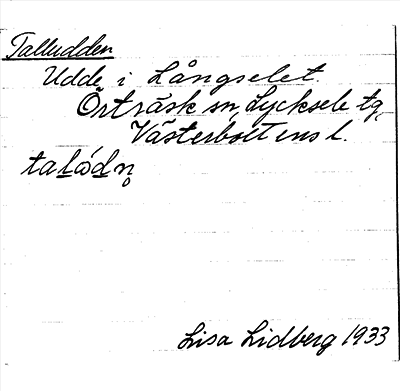 Talludden
Udde i Långselet.
Örträsk sn, Lycksele tg,
Västerbottens l.
talådn̥
Lisa Lidberg 1933